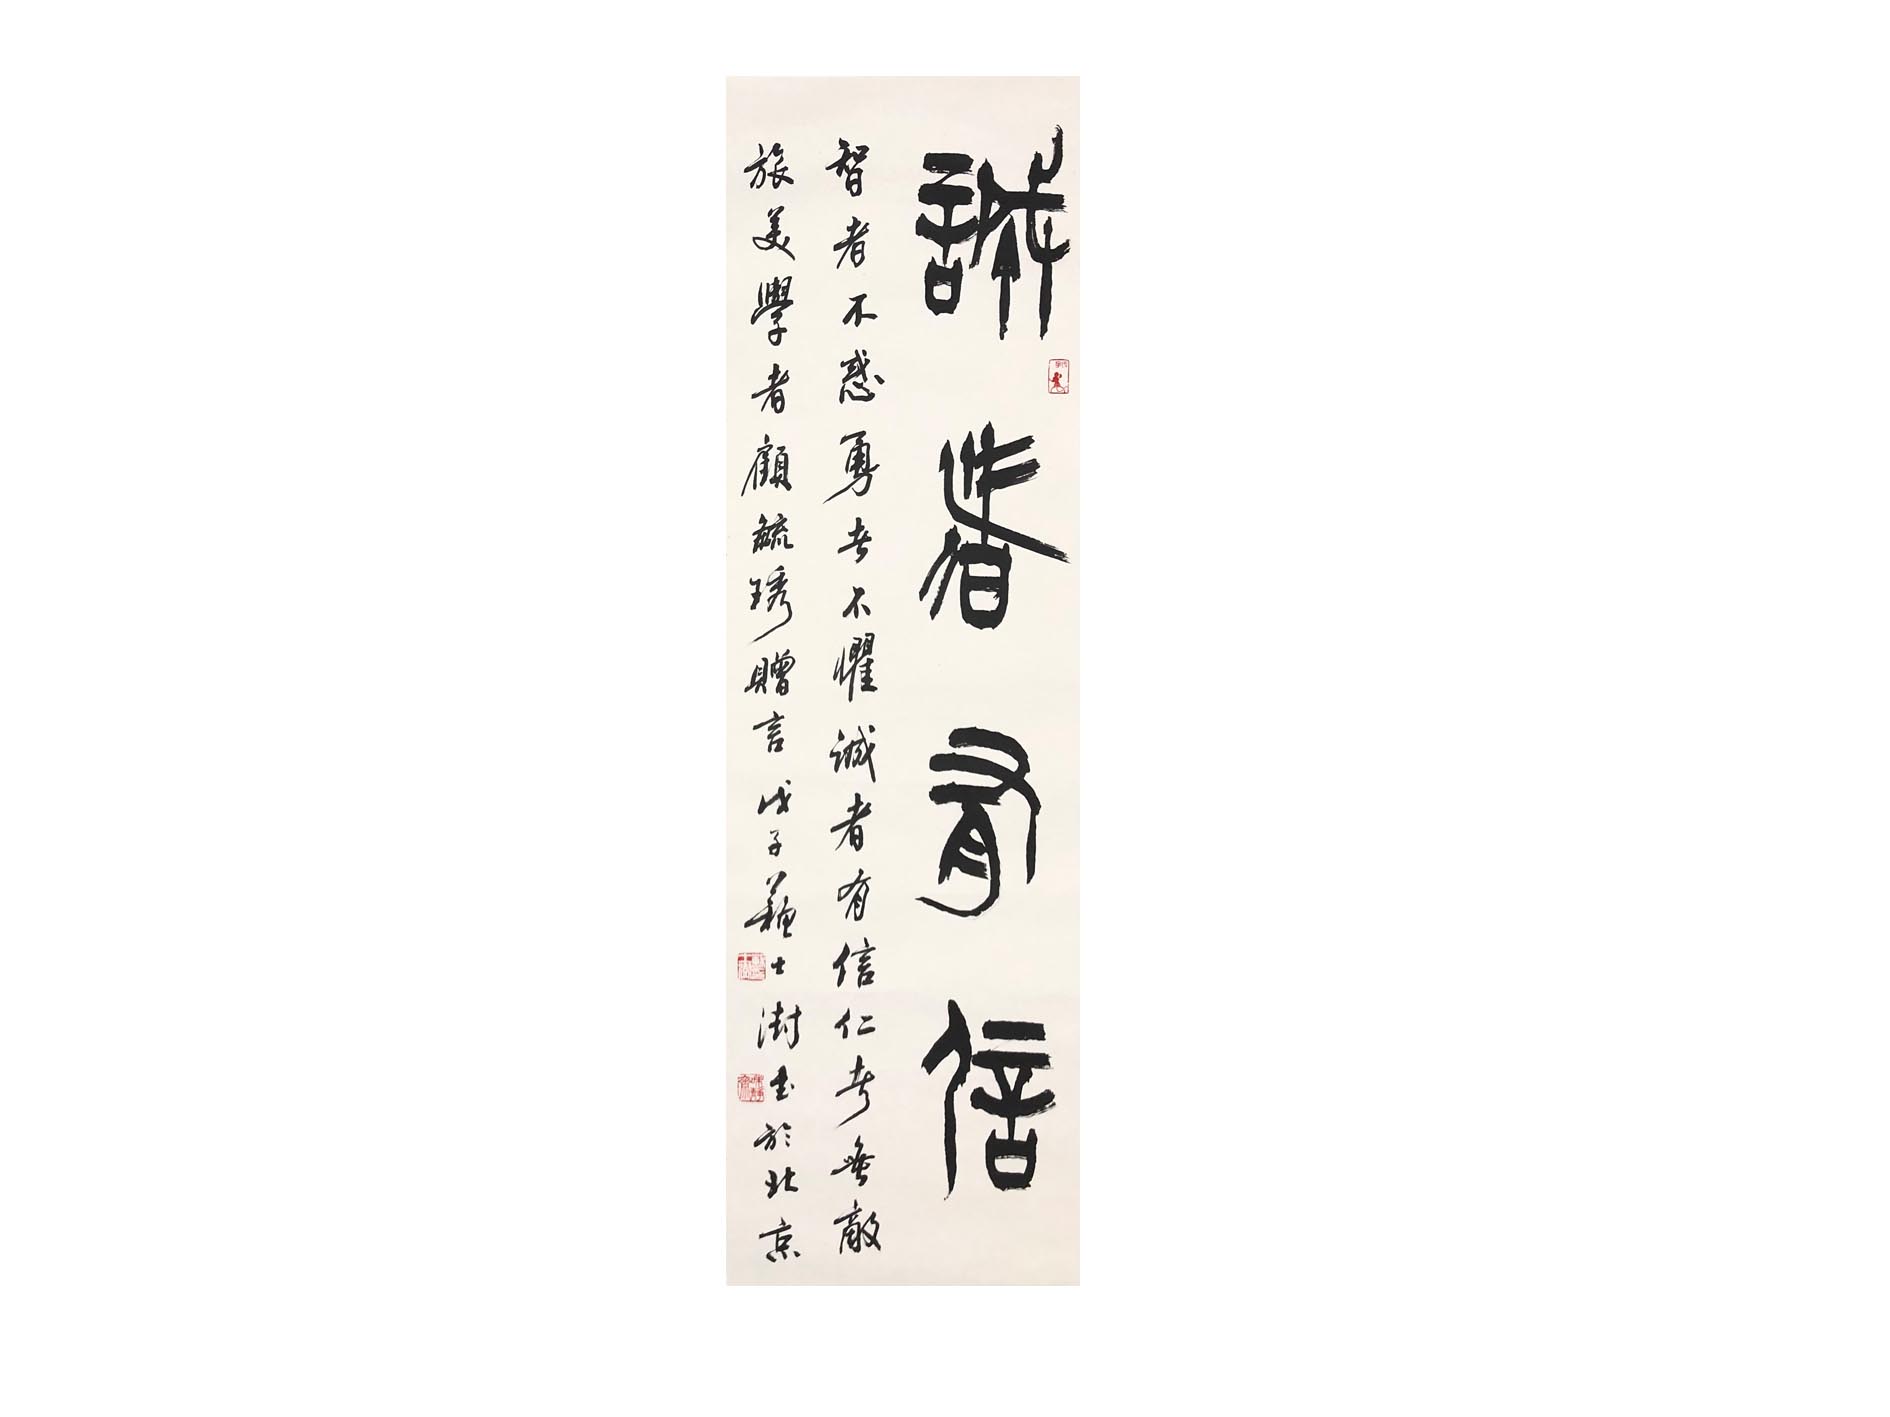 誠者有信
智者不惑勇者不懼誠者有信仁者無敵
旅美學者顧毓琇贈言戊子蘇士澍書於北京